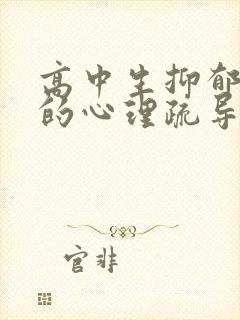 高中生抑郁
的心理疏导
官非